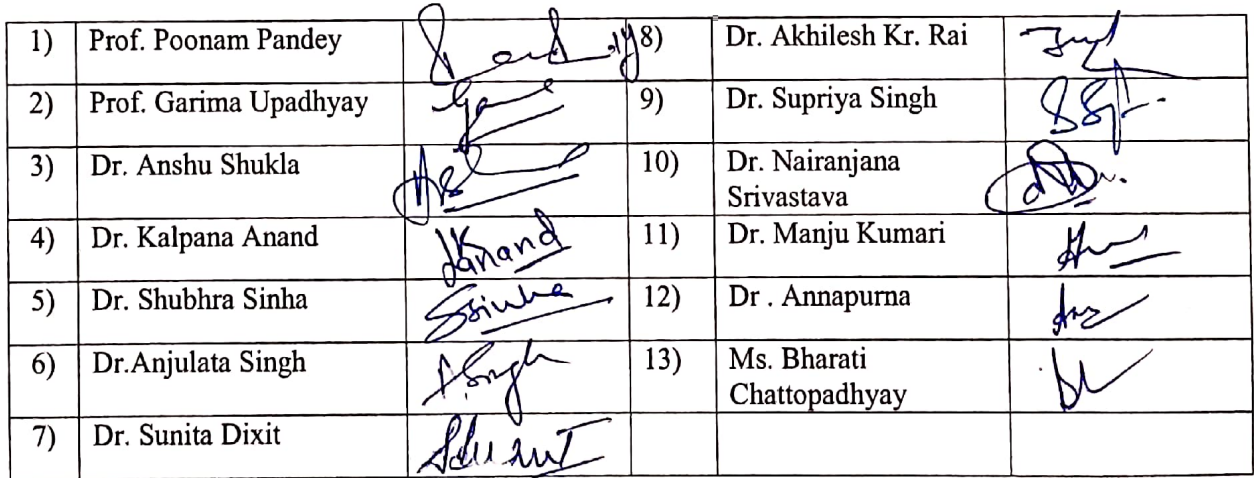 1) Prof. Poonam Pandey 8) Dr. Akhilesh Kr. Rai
2) Prof. Garima Upadhyay 9) Dr. Supriya Singh
3) Dr. Anshu Shukla 10) Dr. Nairanjana
Srivastava
4) Dr. Kalpana Anand KAnand 11) Dr. Manju Kumari
5) Dr. Shubhra Sinha SSinha 12) Dr . Annapurna
6) Dr.Anjulata Singh ASingh 13) Ms. Bharati
Chattopadhyay
7) Dr. Sunita Dixit